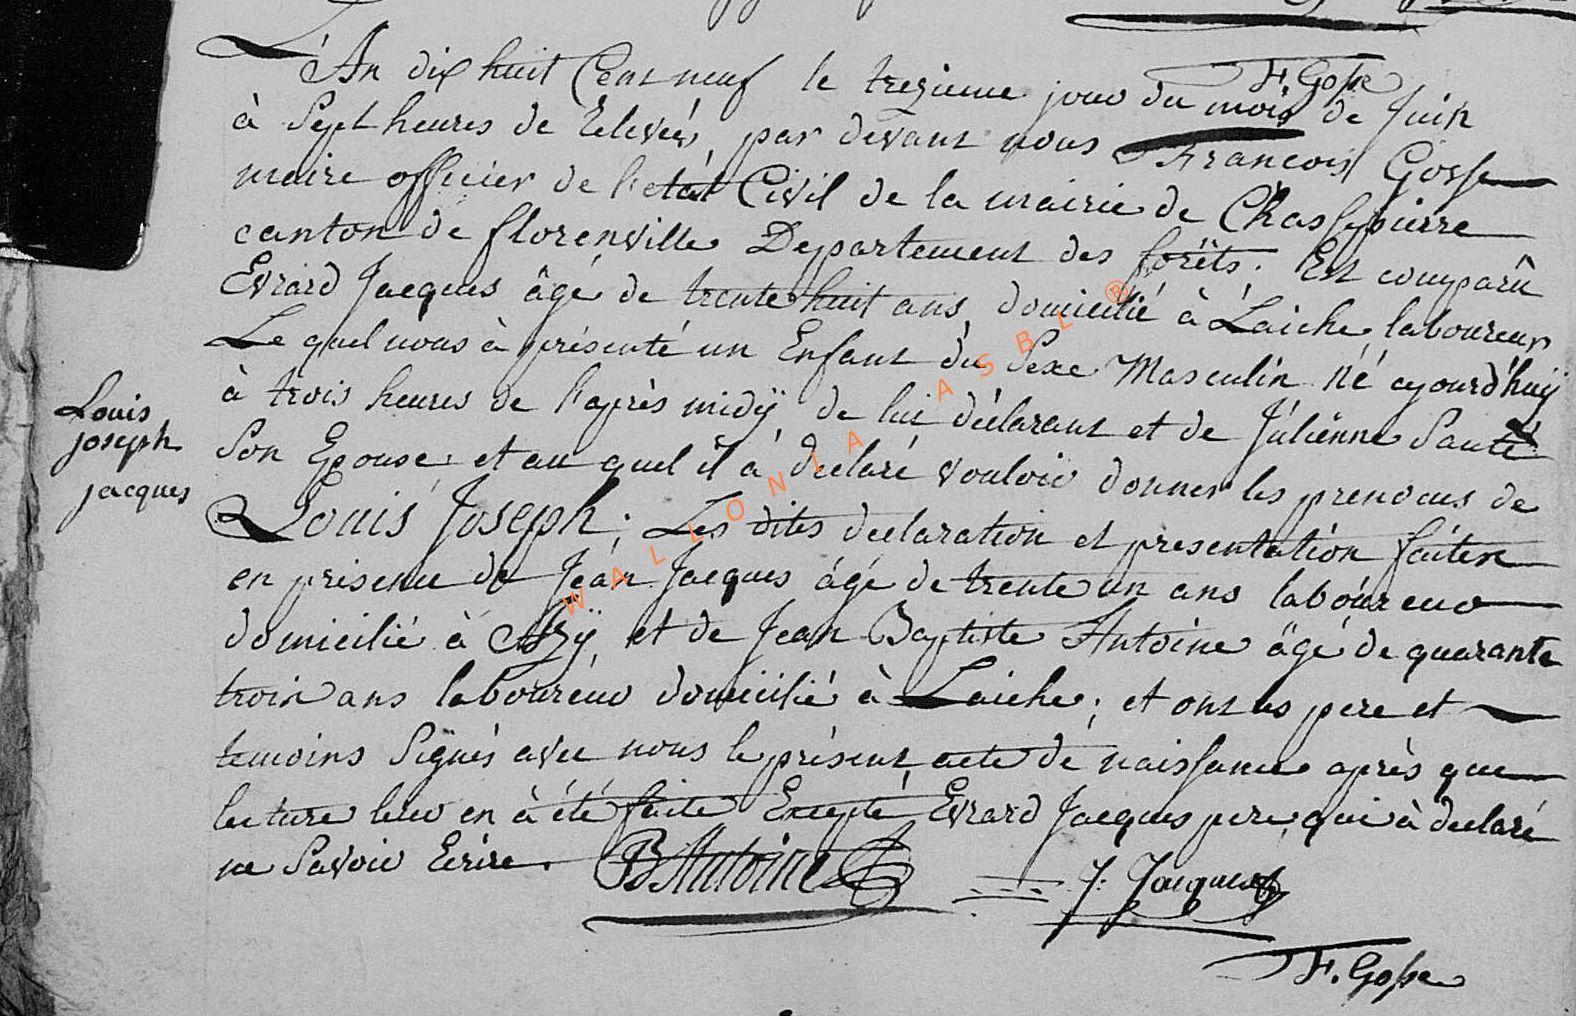 F. Gosse
L'An dix huit Cent neuf le trezieme jour du mois de Juin
à Sept heures de Relevée, par devant nous Francois Gosse
maire officier de l'état Civil de la mairie de Chassepierre
canton de florenville Departement des forêts. Est comparû
Evrard Jacques âgé de trente huit ans domicilié à Laiche, laboureur
Le quel nous à présenté un Enfant du Sexe Masculin né ajourd'huÿ
à trois heures de l'après midÿ de lui déclarant et de Julienne Sauté
Son Epouse, et au quel il à declaré vouloir donner les prenoms de
Louis Joseph; Les dites declaration et presentation faites
en présence de Jean Jacques âgé de trente un ans laboureur
domicilié à Azÿ, et de Jean Baptiste Antoine âgé de quarante
trois ans laboureur domicilié à Laiche; et ont les pere et
temoins Signés avec nous le présent acte de naissance après que
lecture leur en à été faite Excepté Evrard Jacques pere, qui à declaré
ne Savoir Ecrire.
Louis
joseph
jacques
B Antoine
J: Jacques
F. Gosse
WALLONIA ASBL ®